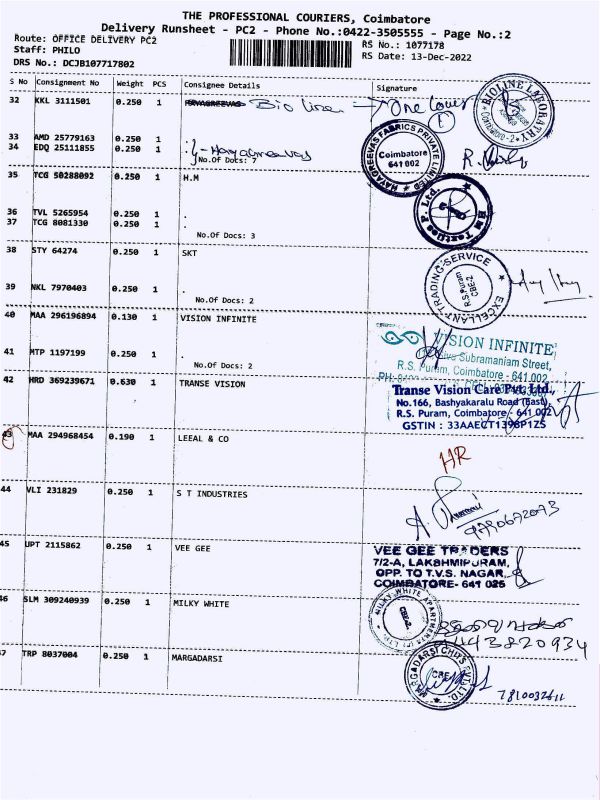 THE PROFESSIONAL COURIERS, Coimbatore
Delivery Runsheet - PC2 - Phone No.:0422-3505555 - Page No.:2
Route: OFFICE DELIVERY PC2
RS No.: 1077178
Staff: PHILO
RS Date: 13-Dec-2022
DRS No.: DCJB107717802
S No Consignment No Weight PCS Consignee Details Signature
32 KKL 3111501 0.250 1 Bio line
BIOLINE LABORATRY
Coimbatore-2
33 AMD 25779163 0.250 1
34 EDQ 25111855 0.250 1 Hayagreevas
No.Of Docs: 7
HAYAGREEVAS FABRICS PRIVATE LIMITED
Coimbatore
641 002
35 TCG 50288092 0.250 1 H.M
36 TVL 5265954 0.250 1 .
37 TCG 8081330 0.250 1 .
No.Of Docs: 3
38 STY 64274 0.250 1 SKT
EXCELLANT TRADING SERVICE
R.S.Puram
CBE-2
39 NKL 7970403 0.250 1 .
No.Of Docs: 2
40 MAA 296196894 0.130 1 VISION INFINITE
VISION INFINITE
Subramaniam Street,
R.S. Puram, Coimbatore - 641 002
41 MTP 1197199 0.250 1 .
No.Of Docs: 2
42 HRD 369239671 0.630 1 TRANSE VISION
Transe Vision Care Pvt. Ltd.,
No.166, Bashyakaralu Road (East),
R.S. Puram, Coimbatore - 641 002
GSTIN : 33AAECT1398P1ZS
43 MAA 294968454 0.190 1 LEEAL & CO
HR
44 VLI 231829 0.250 1 S T INDUSTRIES
45 UPT 2115862 0.250 1 VEE GEE
VEE GEE TRADERS
7/2-A, LAKSHMIPURAM,
OPP. TO T.V.S. NAGAR,
COIMBATORE- 641 025
46 SLM 309240939 0.250 1 MILKY WHITE
MILKY WHITE APARTMENTS
CBE-2.
47 TRP 8037004 0.250 1 MARGADARSI
MARGADARSI CHITS PVT LTD.
CBE
7810032611